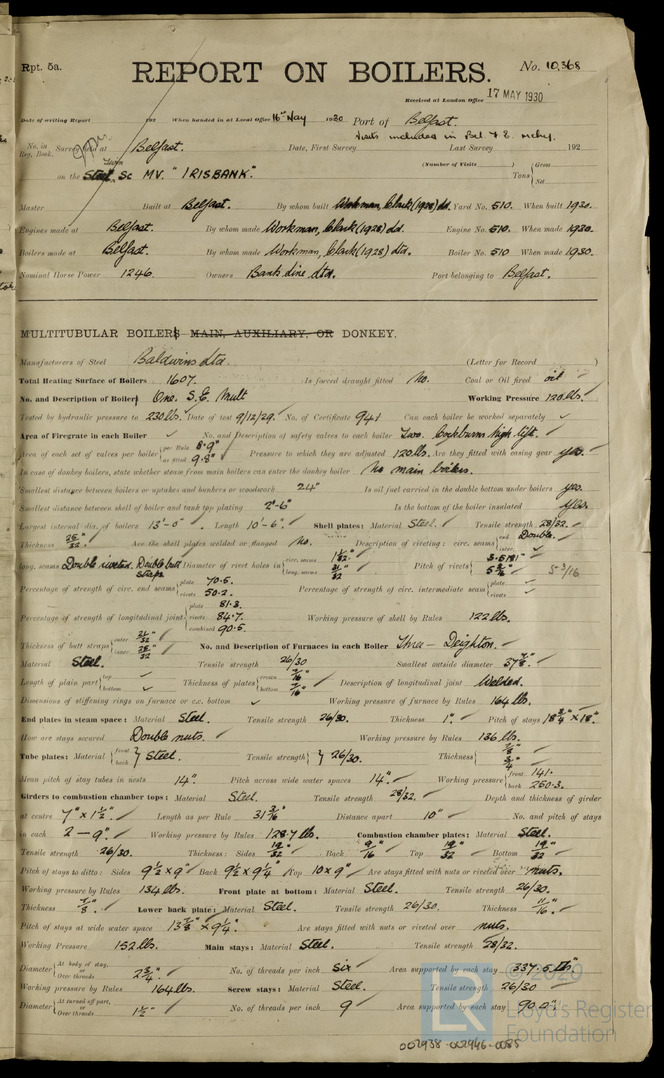 Rpt. 5a.
REPORT ON BOILERS.
No. 10,368
Received at London Office 17 MAY 1930
Date of writing Report 192 When handed in at Local Office 16th May 1930 Port of Belfast.
Visits included in Bel. F.E. mchy.
No. in Reg. Book. Survey held at Belfast. Date, First Survey Last Survey 192
(Number of Visits )
on the Steel Sc MV. "IRISBANK". Tons { Gross Net
Master Built at Belfast. By whom built Workman, Clark (1928) Ld. Yard No. 510. When built 1930.
Engines made at Belfast. By whom made Workman, Clark (1928) Ld. Engine No. 510. When made 1930.
Boilers made at Belfast. By whom made Workman, Clark (1928) Ltd. Boiler No. 510 When made 1930.
Nominal Horse Power 1246. Owners Bank Line Ltd. Port belonging to Belfast.
MULTITUBULAR BOILERS MAIN, AUXILIARY, OR DONKEY.
Manufacturers of Steel Baldwins Ltd. (Letter for Record )
Total Heating Surface of Boilers 1607. Is forced draught fitted No. Coal or Oil fired oil
No. and Description of Boilers One. S.E. Mult Working Pressure 120 lbs.
Tested by hydraulic pressure to 230 lbs. Date of test 9/12/29. No. of Certificate 941 Can each boiler be worked separately ✓
Area of Firegrate in each Boiler ✓ No. and Description of safety valves to each boiler Two. Cockburns high lift.
Area of each set of valves per boiler { per Rule 8.9" as fitted 9.8" Pressure to which they are adjusted 120 lbs. Are they fitted with easing gear yes.
In case of donkey boilers, state whether steam from main boilers can enter the donkey boiler No main boilers.
Smallest distance between boilers or uptakes and bunkers or woodwork 24" Is oil fuel carried in the double bottom under boilers yes.
Smallest distance between shell of boiler and tank top plating 2'-6" Is the bottom of the boiler insulated yes.
Largest internal dia. of boilers 13'-0". Length 10'-6". Shell plates: Material Steel. Tensile strength 28/32.
Thickness 25/32" Are the shell plates welded or flanged No. Description of riveting: circ. seams { end Double. inter. ✓
long. seams Double riveted. Double butt straps Diameter of rivet holes in { circ. seams 1 1/32" long. seams 31/32" Pitch of rivets { 3.5181" 5 3/16" 5 3/16
Percentage of strength of circ. end seams { plate 70.5. rivets 50.2. Percentage of strength of circ. intermediate seam { plate ✓ rivets ✓
Percentage of strength of longitudinal joint { plate 81.3. rivets 84.7. combined 90.5. Working pressure of shell by Rules 122 lbs.
Thickness of butt straps { outer 21/32" inner 25/32" No. and Description of Furnaces in each Boiler Three - Deighton.
Material Steel. Tensile strength 26/30 Smallest outside diameter 37 7/8".
Length of plain part { top ✓ bottom ✓ Thickness of plates { crown 7/16" bottom 7/16" Description of longitudinal joint Welded.
Dimensions of stiffening rings on furnace or c.c. bottom ✓ Working pressure of furnace by Rules 164 lbs.
End plates in steam space: Material Steel. Tensile strength 26/30. Thickness 1". Pitch of stays 18 3/4" × 18".
How are stays secured Double nuts. Working pressure by Rules 136 lbs.
Tube plates: Material { front back } Steel. Tensile strength } 26/30. Thickness { 7/8" 3/4"
Mean pitch of stay tubes in nests 14". Pitch across wide water spaces 14". Working pressure { front 141. back 250.3.
Girders to combustion chamber tops: Material Steel. Tensile strength 28/32. Depth and thickness of girder
at centre 7" × 1 1/2". Length as per Rule 31 3/16" Distance apart 10" No. and pitch of stays
in each 2 - 9". Working pressure by Rules 128.7 lb. Combustion chamber plates: Material Steel.
Tensile strength 26/30. Thickness: Sides 19/32" Back 9/16" Top 19/32" Bottom 19/32"
Pitch of stays to ditto: Sides 9 1/2" × 9" Back 9 1/2" × 9 1/4" Top 10" × 9" Are stays fitted with nuts or riveted over nuts.
Working pressure by Rules 134 lbs. Front plate at bottom: Material Steel. Tensile strength 26/30.
Thickness 7/8". Lower back plate: Material Steel. Tensile strength 26/30. Thickness 11/16".
Pitch of stays at wide water space 13 7/8" × 9 1/4". Are stays fitted with nuts or riveted over nuts.
Working Pressure 152 lbs. Main stays: Material Steel. Tensile strength 28/32.
Diameter { At body of stay, or Over threads 2 3/4" No. of threads per inch Six Area supported by each stay 337.5
Working pressure by Rules 164 lbs. Screw stays: Material Steel. Tensile strength 26/30
Diameter { At turned off part, or Over threads 1 1/2" No. of threads per inch 9 Area supported by each stay 90.0".
© 2020
LR
Lloyd's Register
Foundation
002938-002946-0085